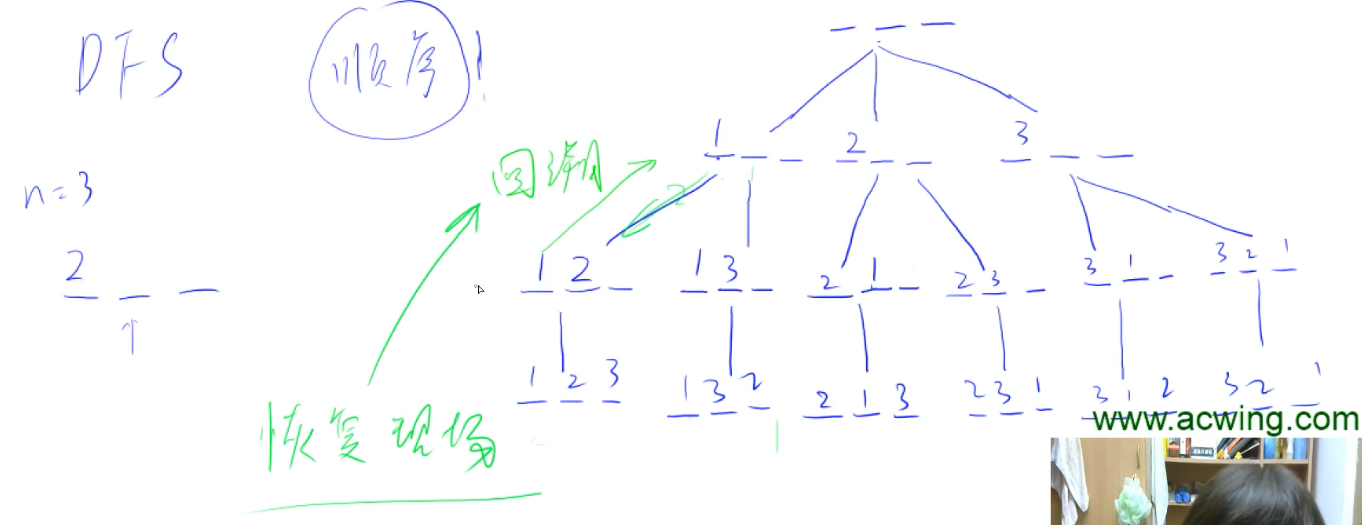 DFS 顺序!
n=3
2 _ _
↑
回溯
恢复现场
_ _ _
1 _ _ 2 _ _ 3 _ _
1 2 _ 1 3 _ 2 1 _ 2 3 _ 3 1 _ 3 2 1
1 2 3 1 3 2 2 1 3 2 3 1 3 1 2 3 2 1
2
www.acwing.com